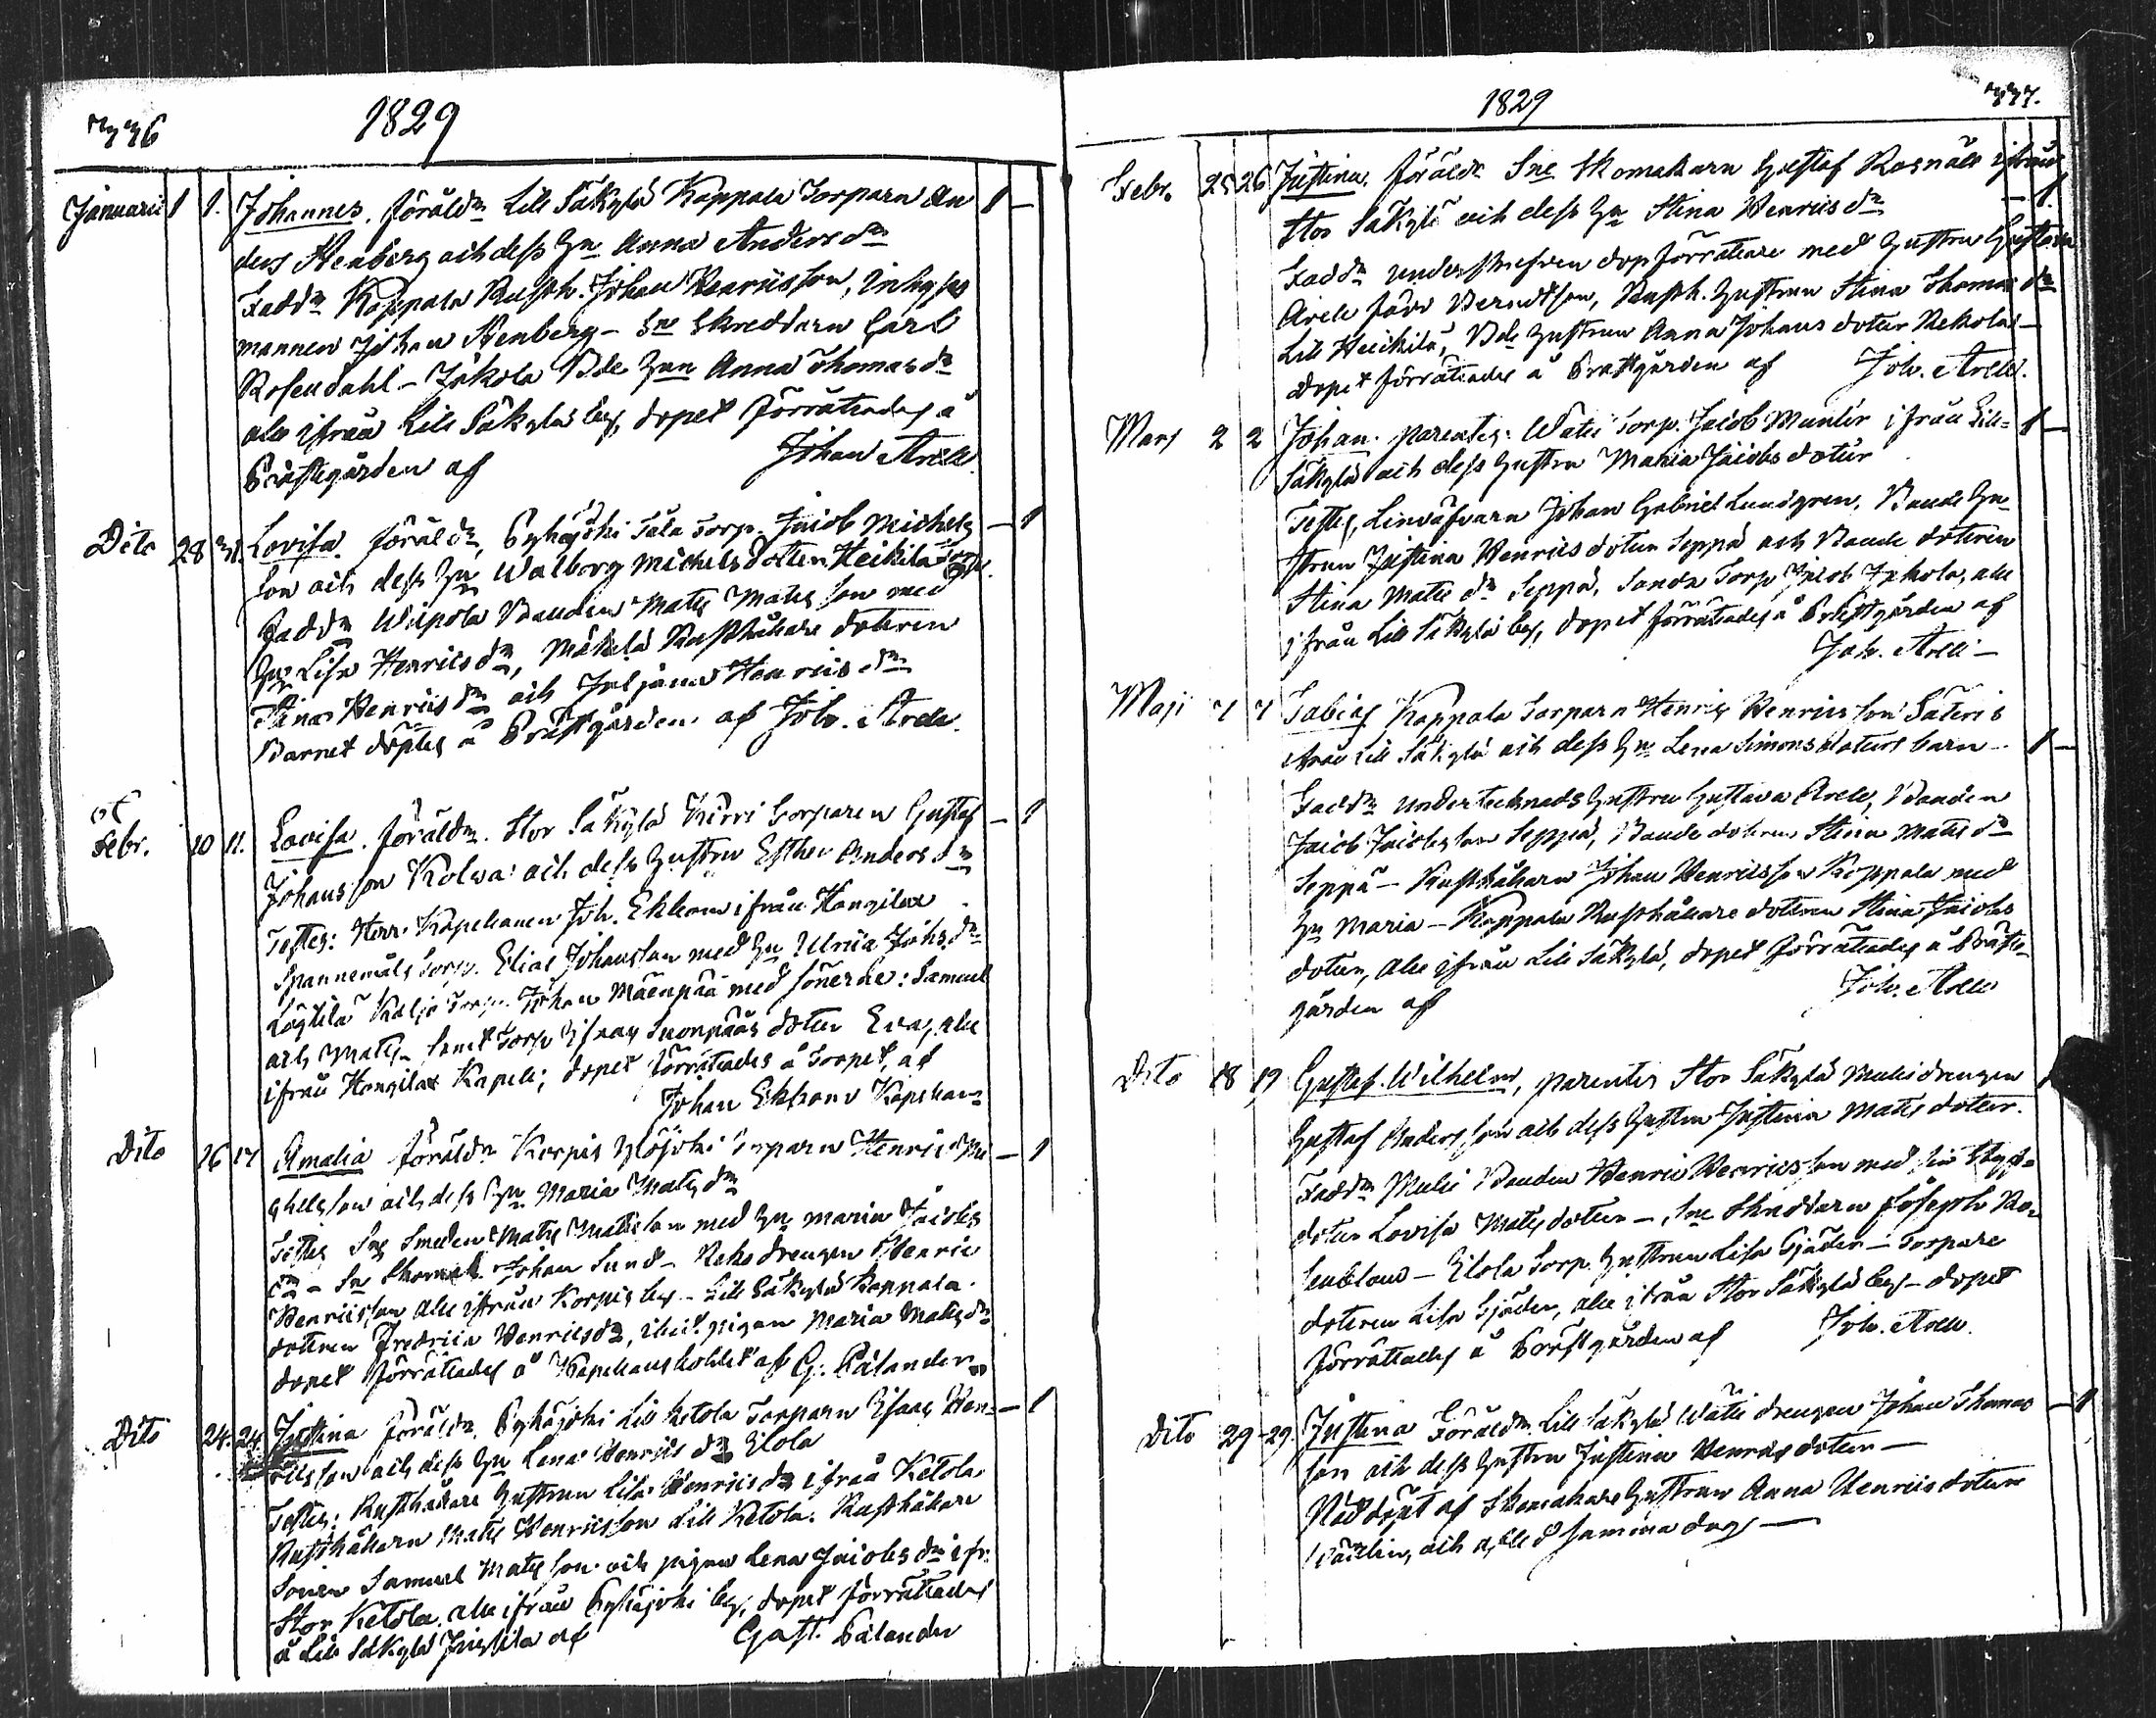 776
1829
Januarii 1 1. Johannes. föräldr Lill Säkylä Kappala Torparn An
ders Stenberg och dess Hu Anna Andersdr
Faddr Kappala Rusth. Johan Henricsson, Inhyses
mannen Johan Stenberg – Sne Skreddarn Carl
Rosendahl – Jakola Bde Hun Anna Thomasdr
alle ifrån Lill Säkylä by, dopet förrättades å
Prästgården af Johan Arell.
Dito 28 31. Lovisa. föräldr, Pyhäjoki Tala Torp. Jacob Michels
son och dess Hu Walborg Michelsdotter Heikilä
Faddr Uupola Bonden Matts Matsson med
Hu Lisa Henricsdr, Mäkelä Rusthållare dotteren
Stina Henricsdr och Juljana Henricsdr
Barnet döptes å Prästgården af Joh. Arell.
Febr. 10 11. Lovisa. föräldr. Stor Säkylä Kirri Torparen Gustaf
Johansson Kolwa och dess Hustru Esther Andersdr
Testes: Herr Kapellanen Joh. Ekbom ifrån Hongilax
Spannemåls Torp. Elias Johansson med Hu Ulrica Johsdr
Torp. Johan Mäenpää med sönerne: Samuel
och Matts – samt Torp Isaac dotter Eva, alle
ifrån Hongilax Kapell; dopet förrättades å Torpet, af
Johan Ekbom Kapellan
Dito 16 17 Amalia föräldr Korpis Torparn Henric Mi
chelsson och dess Hu Maria Matsdr
Testes Sne Smeden Matts Matsson med Hu Maria Jacobs
dr – Sn Skomak. Johan Sund – drengen Henric
Henricsson alle ifrån Korpis by – Lill Säkylä Kappala
dotteren Fredrica Henricsdr, pigan Maria Matsdr
dopet förrättades å Kapellansbohlet af G. Pålander
Dito 24. 24. Justina föräldr. Pyhäjoki Lill Ketola Torparn Isaac Hen
ricsson och dess Hu Lena Henricsdr Elola
Testes: Rusthållare Hustrun Lisa Henricsdr ifrån Ketola
Rusthållarn Matts Henricsson Lill Ketola. Rusthållare
Sonen Samuel Matsson och pigan Lena Jacobsdr ifr.
Stor Ketola alle ifrån Pyhäjoki by, dopet förrättades
å Lill Säkylä af Gust. Pålander
1829
777.
Febr. 25 26 Justina. föräldr Sne Skomakarn Gustaf Rosnäll ifrån
Stor Säkylä och dess Hu Stina Henricsdr
Faddr underskrefven dopförrättare med Hustru Gustava
Arell född Berndtson, Rusth. Hustrun Stina Thomasdr
Lill Heickilä, Bde Hustrun Anna Johans dotter
dopet förrättades å Prestgården af Joh. Arell.
Mars 2 2 Johan. parentes: Torp. Jacob Muntér ifrån Lill
Säkylä och dess Hustru Maria Jacobs dotter
Testes, Linväfvarn Johan Gabriel Lundgren, Bonde Hu
strun Justina Henrics dotter Seppä och Bonde dotteren
Stina Mattsdr Seppä, Torp Jacob Jakola, alle
ifrån Lill Säkylä by, dopet förrättades å Prestgården af
Joh. Arell –
Maji 7 7 Tobias Kappala Torparn Henric Henricsson
ifrån Lill Säkylä och dess Hu Lena Simons dotters barn
Faddr undertecknads Hustru Gustava Arell, Bonden
Jacob Jacobsson Seppä, Bonde dotteren Stina Matsdr
Seppä – Rusthållarn Johan Henricsson Kappala med
Hu Maria – Kappala Rusthållare dotteren Stina Jacobs
dotter, alle ifrån Lill Säkylä, dopet förrättades å Präst
gården af Joh. Arell
Dito 18 19 Gustaf Wilhelm, parentes Stor Säkylä drengen
Gustaf Andersson och dess Hustru Justina Mattsdotter.
Faddr Bonden Henric Henricsson med sin Styf
dotter Lovisa Matsdotter –, Sne Skreddarn Joseph Ro
senblom – Elola Torp. Hustrun Lisa Sjöder – Torpare
dotteren Lisa Sjöder, alle ifrån Stor Säkylä by – dopet
förrättades å Prestgården af Joh. Arell.
Dito 29 29. Justina Föräldr. Lill Säkylä drengen Johan Thomas
son och dess Hustru Justina Henricsdotter –
Nöddöpt af Skomakare Hustrun Anna Henricsdotter
och afled samma dag –